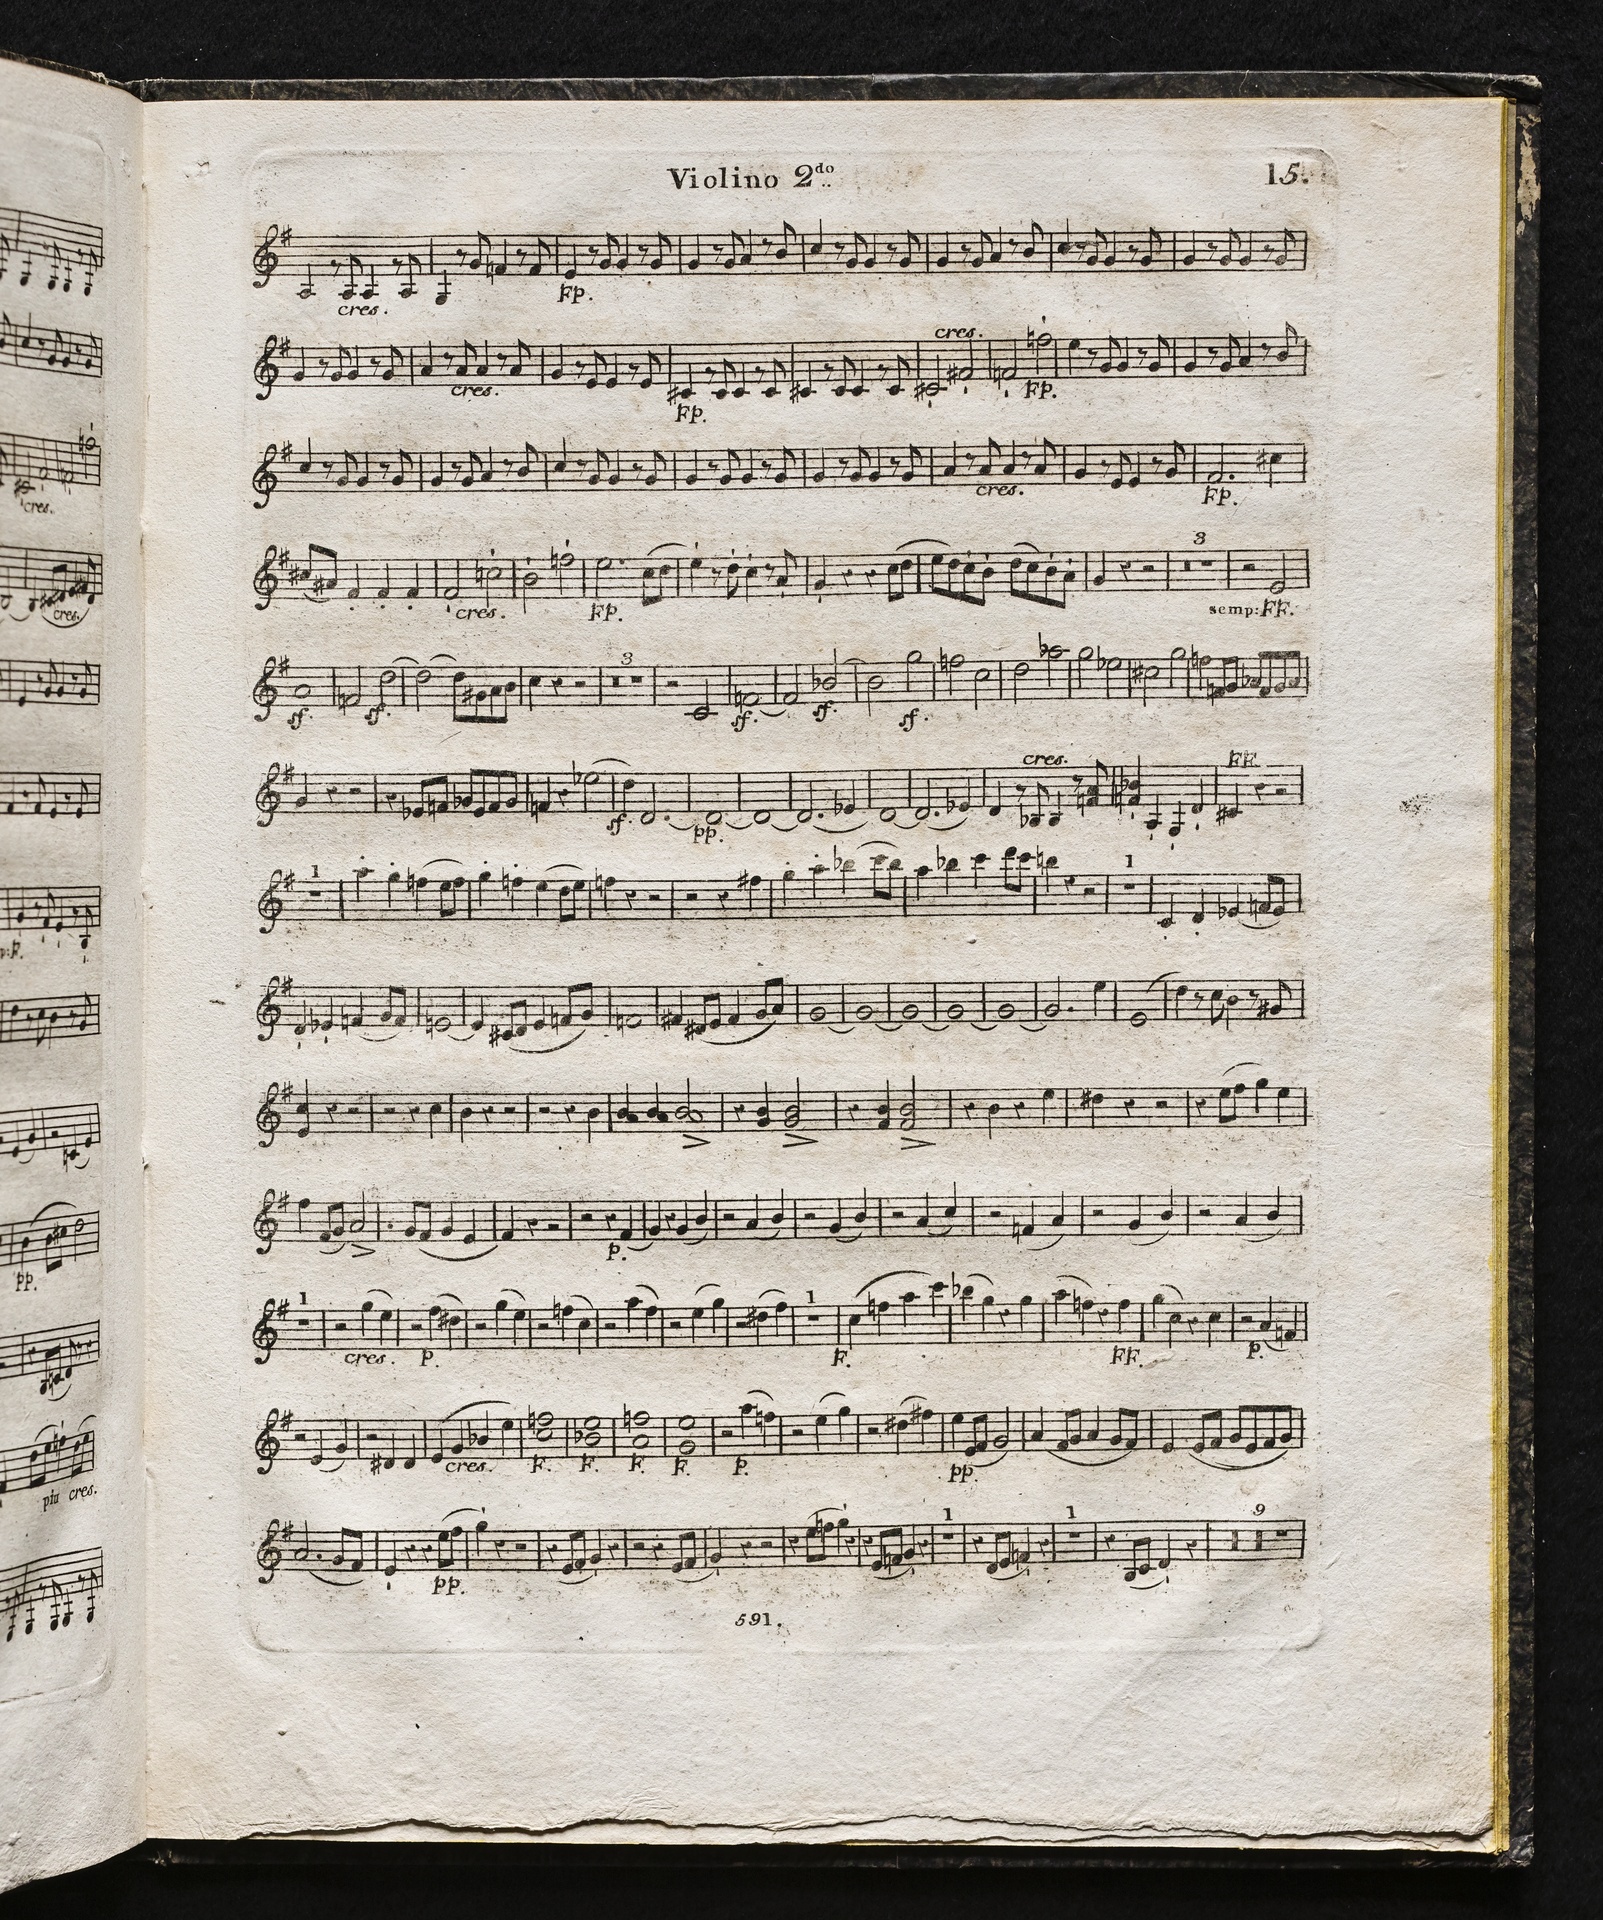 Violino 2do 15.
cres. Fp.
cres. Fp. cres. Fp.
cres. Fp.
cres. Fp. 3 semp: FF.
sf. sf. 3 sf. sf. sf.
sf. pp. cres. FF.
1 1
p.
1 cres. p. 1 F. FF. p.
cres. F. F. F. F. p. pp.
pp. 1 1 9
591.
cres.
cres.
pp.
piu cres.